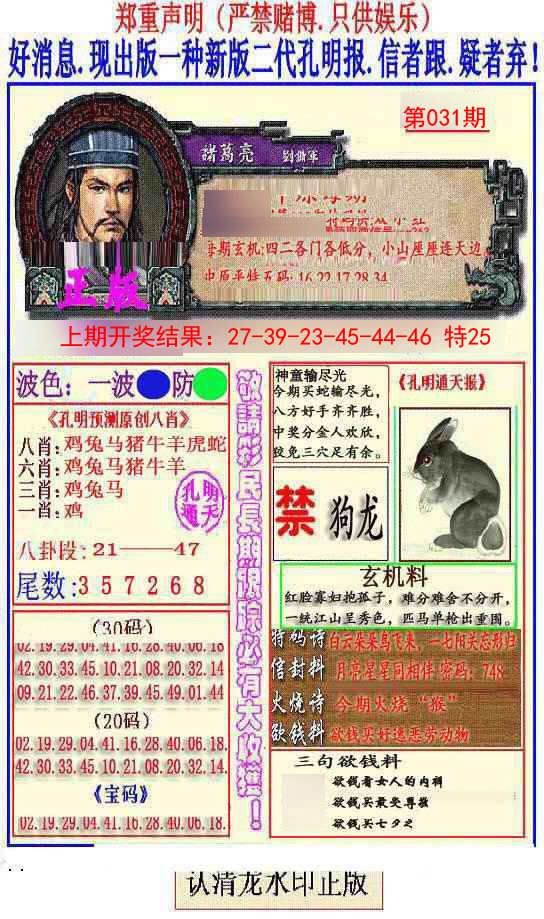 郑重声明（严禁赌博.只供娱乐）
好消息.现出版一种新版二代孔明报.信者跟.疑者弃！
第031期
諸葛亮
劉備軍
每期玄机:四二各门各低分，小山屋屋连天边。
中原平特五码:16.22.17.28.34
正版
上期开奖结果：27-39-23-45-44-46 特25
波色：一波 防
《孔明预测原创八肖》
八肖:鸡兔马猪牛羊虎蛇
六肖:鸡兔马猪牛羊
三肖:鸡兔马
一肖:鸡
孔明
通天
八卦段:21——47
尾数:357268
(30码)
02.19.29.04.41.16.28.40.06.18
42.30.33.45.10.21.08.20.32.14
09.21.22.46.37.39.45.49.01.44
(20码)
02.19.29.04.41.16.28.40.06.18
42.30.33.45.10.21.08.20.32.14
《宝码》
02.19.29.04.41.16.28.40.06.18
敬請彩民長期跟踪必有大收獲！
神童输尽光
今期买蛇输尽光，
八方好手齐齐胜，
中奖分金人欢欣，
狡兔三穴足有余。
《孔明通天报》
禁
狗龙
玄机料
红脸寡妇抱孤子，难分难舍不分开，
一统江山呈秀色，匹马单枪出重围。
特码诗 白云朵朵鸟飞来，一七阳关忘形归
信封料 月亮星星同相伴 密码：748
火烧诗 今期火烧“猴”
欲钱料 欲钱买好逸恶劳动物
三句欲钱料
欲钱看女人的内裤
欲钱买最受尊敬
欲钱买七夕之
认清龙水印正版